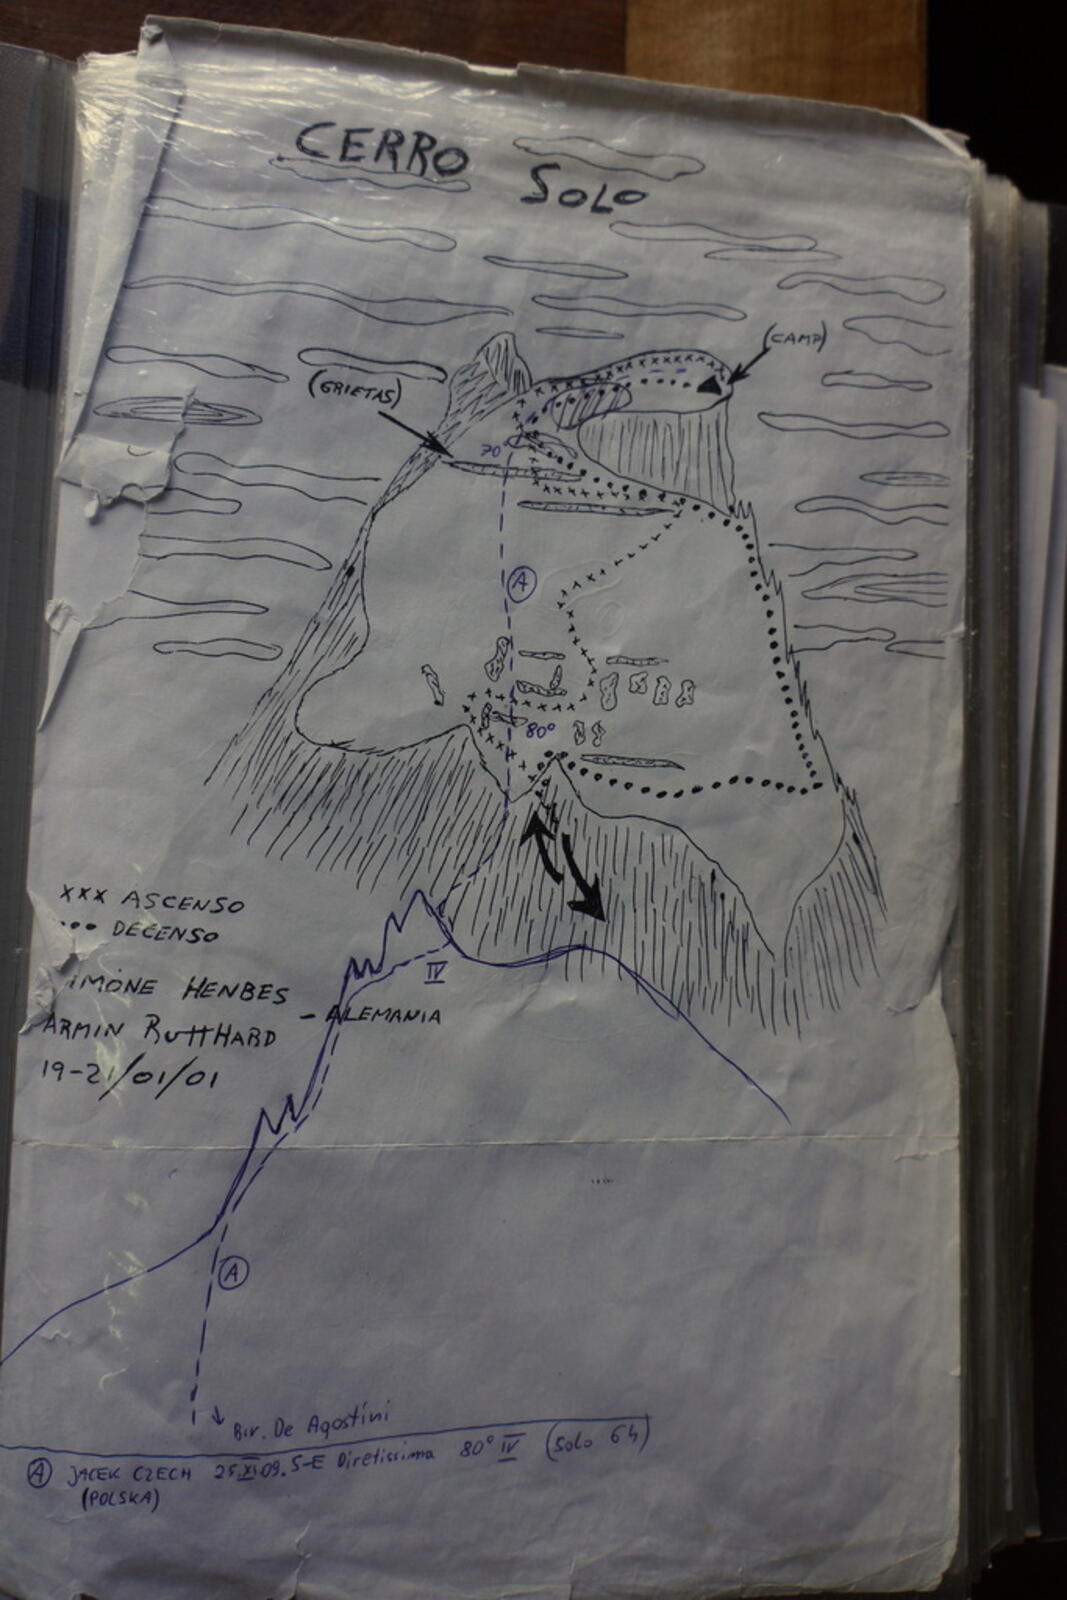 CERRO SOLO
(CAMP)
(GRIETAS)
70°
A
80°
xxx ASCENSO
••• DECENSO
IV
IMONE HENBES
- ALEMANIA
ARMIN RUTTHARD
19-21/01/01
A
Biv. De Agostini
A JACEK CZECH 25.XI.09. S-E Diretissima 80° IV (Solo 6h)
(POLSKA)